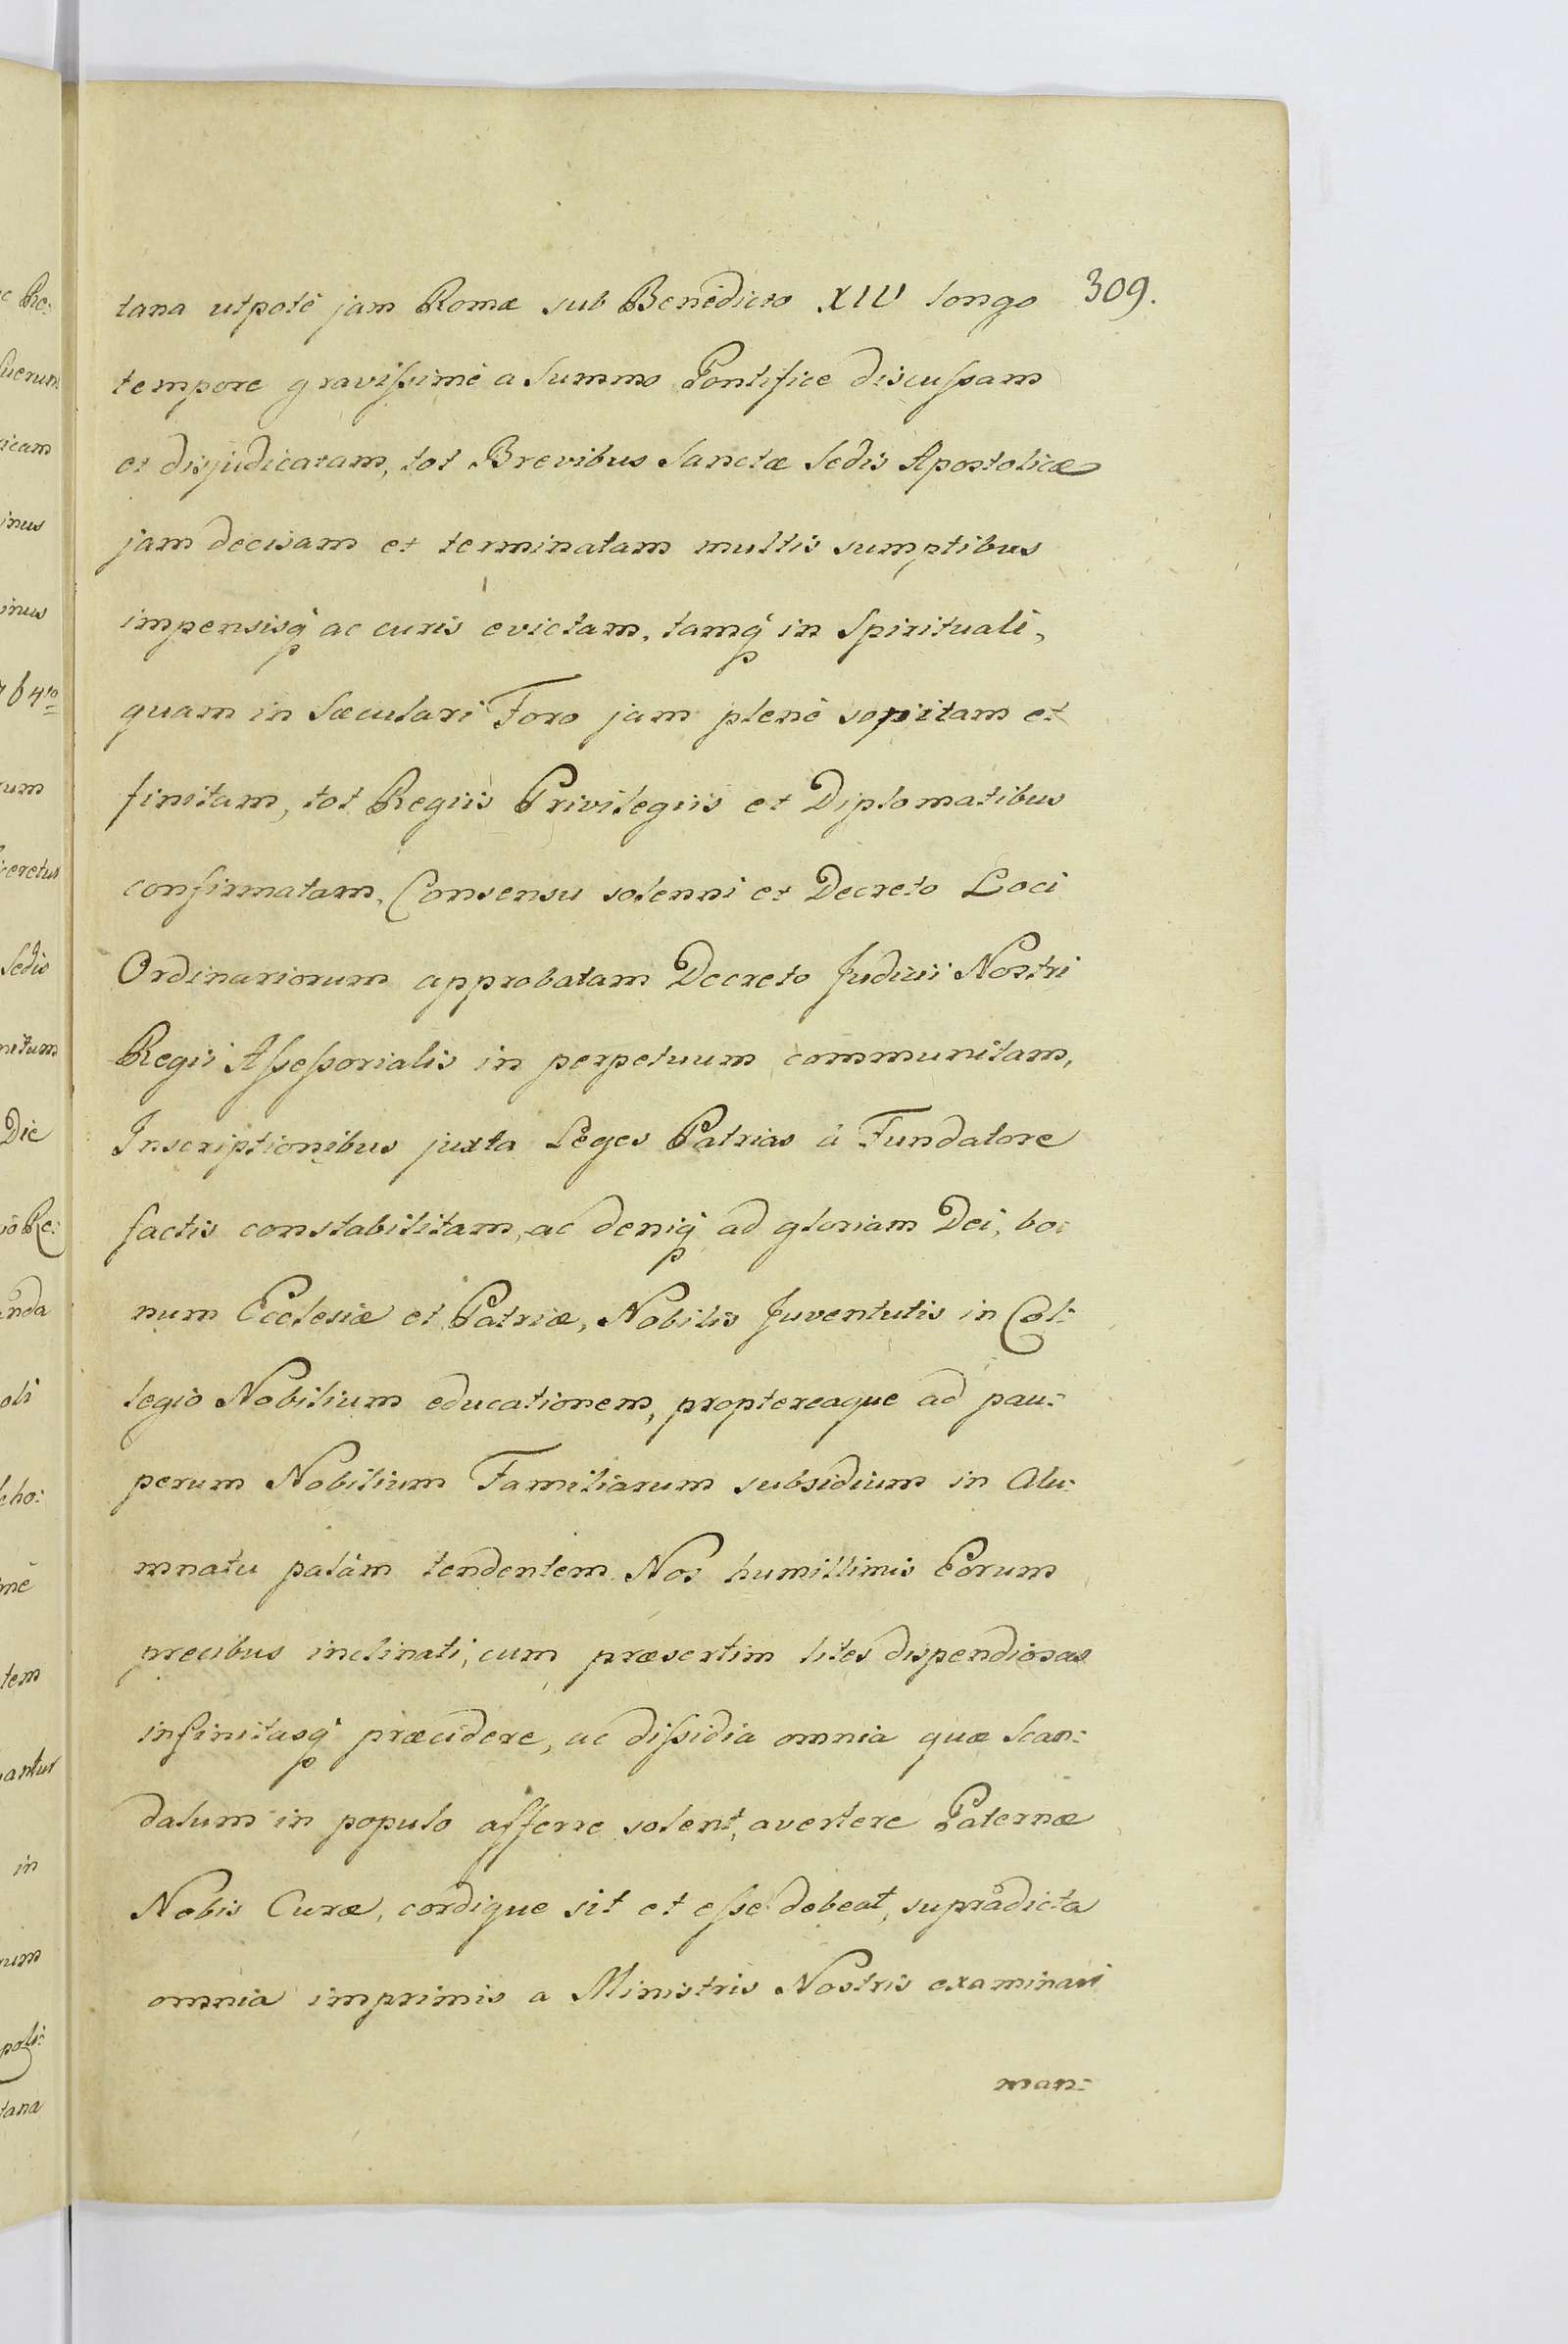 309.
tana utpotè jam Romæ sub Benedicto XIV longo
tempore gravissimè a Summo Pontifice discussam
et disjudicatam, tot Brevibus Sanctæ Sedis Apostolicæ
jam decisam et terminatam multis sumptibus
impensisq; ac curis evictam, tamq; in Spirituali,
quam in Sæculari Foro jam plenè sopitam et
finitam, tot Regiis Privilegiis et Diplomatibus
confirmatam, Consensu solenni et Decreto Loci
Ordinariorum approbatam Decreto Judicii Nostri
Regii Assessorialis in perpetuum communitam,
Inscriptionibus juxta Leges Patrias à Fundatore
factis constabilitam, ac deniq; ad gloriam Dei, bo:
num Ecclesiæ et Patriæ, Nobilis Juventutis in Col:
legio Nobilium educationem, proptereaque ad pau:
perum Nobilium Familiarum subsidium in Alu:
mnatu palàm tendentem. Nos humillimis Eorum
precibus inclinati, cum præsertim lites dispendiosas
infinitasq; præcidere, ac dissidia omnia quæ Scan:
dalum in populo afferre solent, avertere Paternæ
Nobis Curæ, cordique sit et esse debeat, supradicta
omnia imprimis a Ministris Nostris examinari
man: